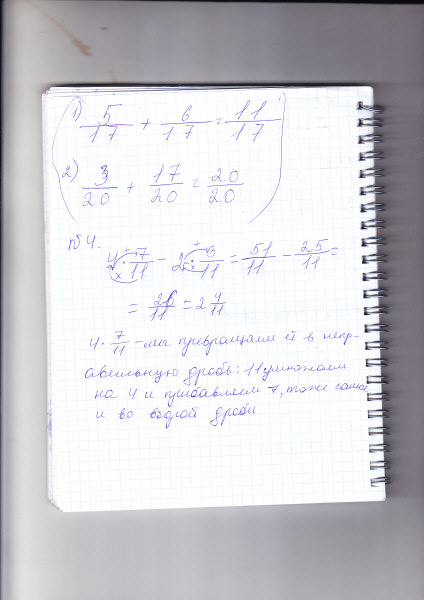 1) 5/17 + 6/17 = 11/17
2) 3/20 + 17/20 = 20/20
№4.
4 7/11 - 2 3/11 = 51/11 - 25/11 =
= 26/11 = 2 4/11
4 · 7/11 - мы превращаем её в непр-
авильную дробь: 11 умножаем
на 4 и прибавляем 7, тоже самое
и во второй дроби